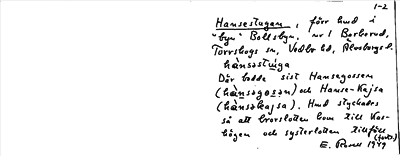 1-2
Hansestugan, förr hmd i
"byn" Bollsbyn, nr 1 Borserud,
Torrskogs sn, Vedbo hd, Älvsborgs l.
hànsəstu̇ga
Där bodde sist Hansegossen
(hànsəgɔsən) och Hanse-Kajsa
(hànsəkajsa). Hmd styckades
så att brorslotten kom till Kas-
högen och systerlotten tillföll
(forts)
E. Rosell 1949